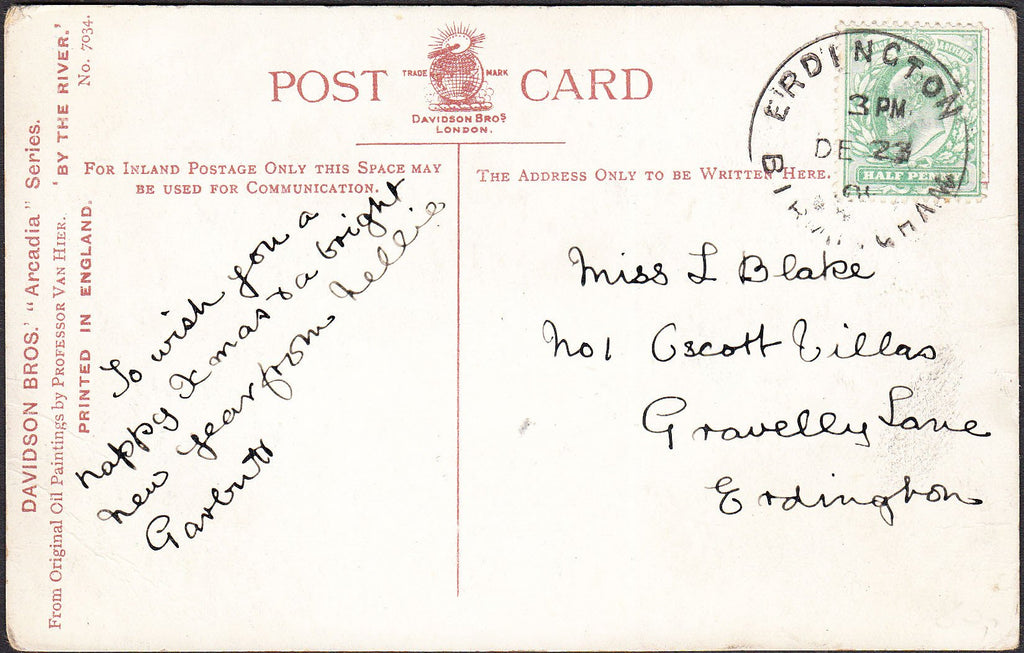 POST CARD
TRADE MARK
DAVIDSON BROS
LONDON.
FOR INLAND POSTAGE ONLY THIS SPACE MAY
BE USED FOR COMMUNICATION.
THE ADDRESS ONLY TO BE WRITTEN HERE.
DAVIDSON BROS.' "Arcadia" Series.
From Original Oil Paintings by PROFESSOR VAN HIER.
'BY THE RIVER.'
PRINTED IN ENGLAND.
No. 7034.
To wish you a
happy Xmas & a bright
new year from Nellie
Garbutt
ERDINGTON
3 PM
DE 23
HALF PENNY
Miss L Blake
No 1 Oscott Villas
Gravelly Lane
Erdington